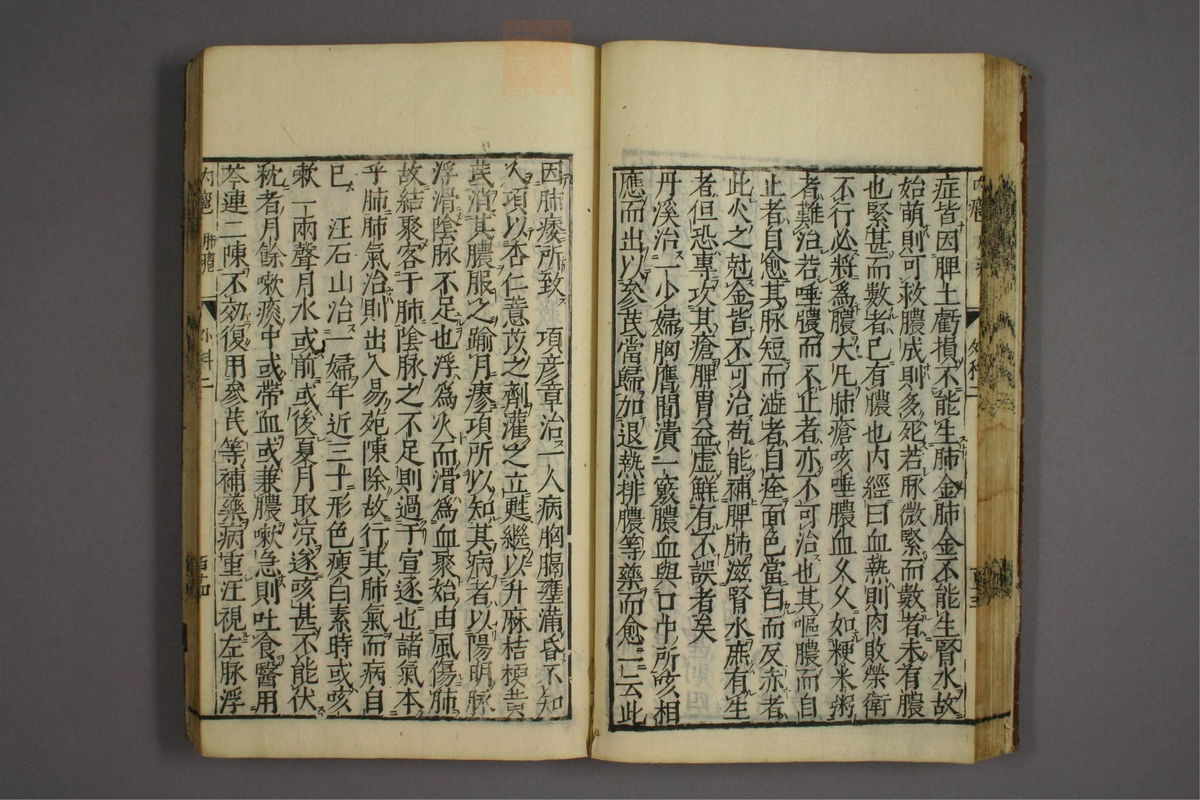 症皆因脾土虧損不能生肺金肺金不能生腎水故
始萌則可救膿成則多死若脉微緊而數者未有膿
也緊甚而數者已有膿也内經曰血熱則肉敗榮衛
不行必將爲膿大凡肺瘡咳唾膿血久久如粳米粥
者難治若唾膿而不止者亦不可治也其嘔膿而自
止者自愈其脉短而澁者自痊面色當白而反赤者
此火之尅金皆不可治苟能補脾肺滋腎水庶有生
者但恐專攻其瘡脾胃益虚鮮有不誤者矣
丹溪治一少婦胸膺間潰一竅膿血與口中所咳相
應而出以參芪當歸加退熱排膿等藥而愈一云此
因肺痿所致　項彦章治一人病胸膈壅滿昏不知
人項以杏仁薏苡之劑灌之立甦繼以升麻桔梗黄
芪消其膿服之踰月瘳項所以知其病者以陽明脉
浮滑陰脉不足也浮爲火而滑爲血聚始由風傷肺
故結聚客于肺陰脉之不足則過于宣逐也諸氣本
乎肺肺氣治則出入易菀陳除故行其肺氣而病自
已　汪石山治一婦年近三十形色瘦白素時或咳
嗽一兩聲月水或前或後夏月取凉遂咳甚不能伏
枕者月餘嗽痰中或帶血或兼膿嗽急則吐食醫用
芩連二陳不効復用參芪等補藥病重汪視左脉浮
内癰　肺癰　外科二